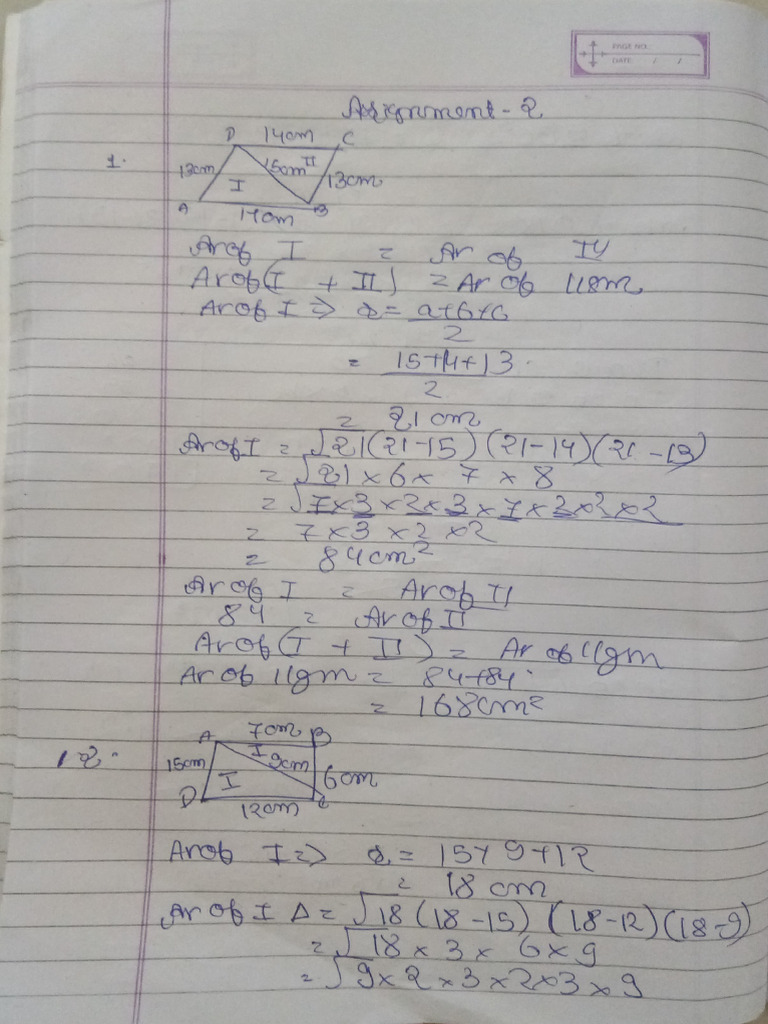 PAGE NO.
DATE / /
Assignment - 2
1.
D 14cm C
13cm I 15cm II 13cm
A 14cm B
Ar of I = Ar of II
Ar of (I + II) = Ar of llgm
Ar of I => s = a+b+c
2
= 15+14+13
2
= 21 cm
Ar of I = √21(21-15) (21-14)(21-13)
= √21 × 6 × 7 × 8
= √7×3×2×3×7×2×2×2
= 7×3×2×2
= 84cm²
Ar of I = Ar of II
84 = Ar of II
Ar of (I + II) = Ar of llgm
Ar of llgm = 84+84
= 168cm²
2.
A 7cm B
15cm I 9cm 6cm
D I C
12cm
Ar of I => s = 15+9+12
= 18 cm
Ar of I Δ = √18 (18-15) (18-12)(18-9)
= √18 × 3 × 6 × 9
= √9×2×3×2×3×9